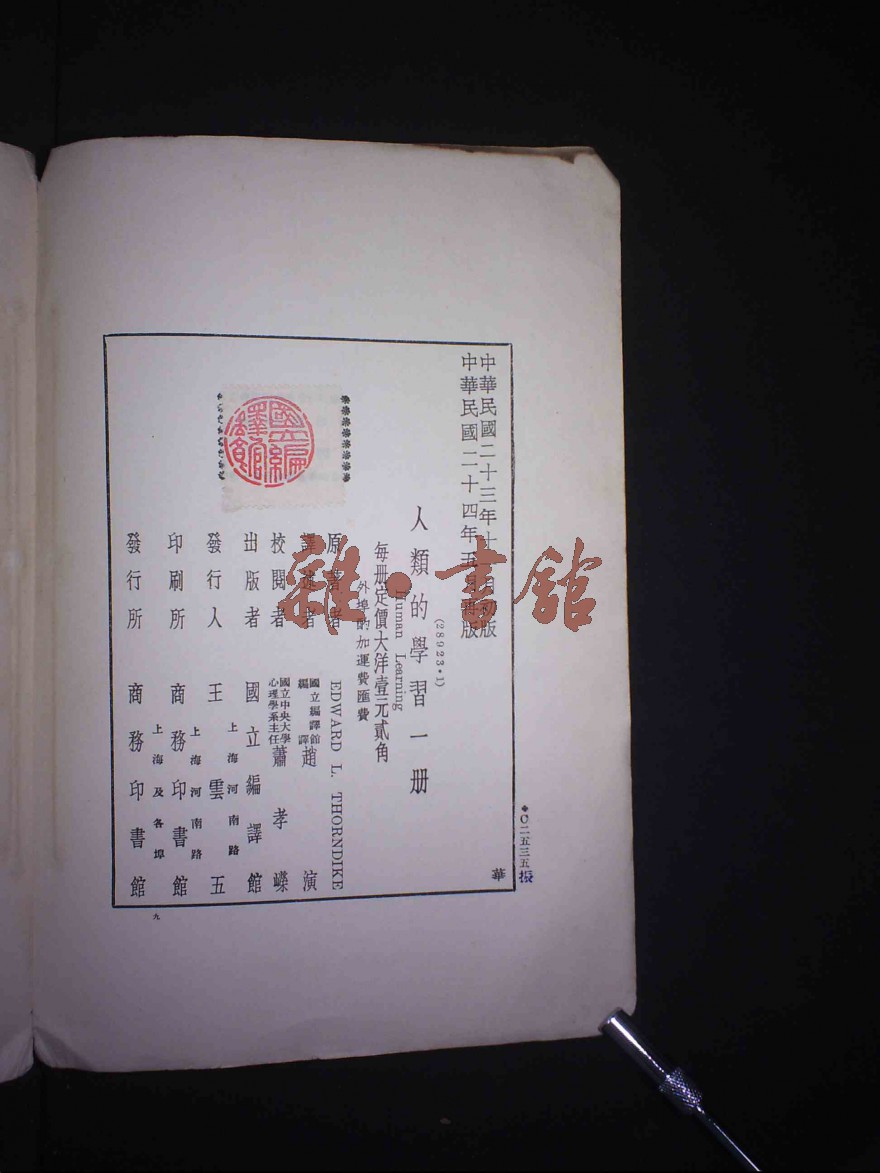 中華民國二十三年十一月初版
中華民國二十四年五月再版
(28923·1)
人類的學習一册
Human Learning
每册定價大洋壹元貳角
外埠酌加運費匯費
原著者 EDWARD L. THORNDIKE
譯述者 國立編譯館編譯 趙演
校閱者 國立中央大學心理學系主任 蕭孝嶸
出版者 國立編譯館
發行人 王雲五
上海河南路
印刷所 商務印書館
上海河南路
發行所 商務印書館
上海及各埠
國立編譯館
◆〇二五三五
振
華
九
雜·書館